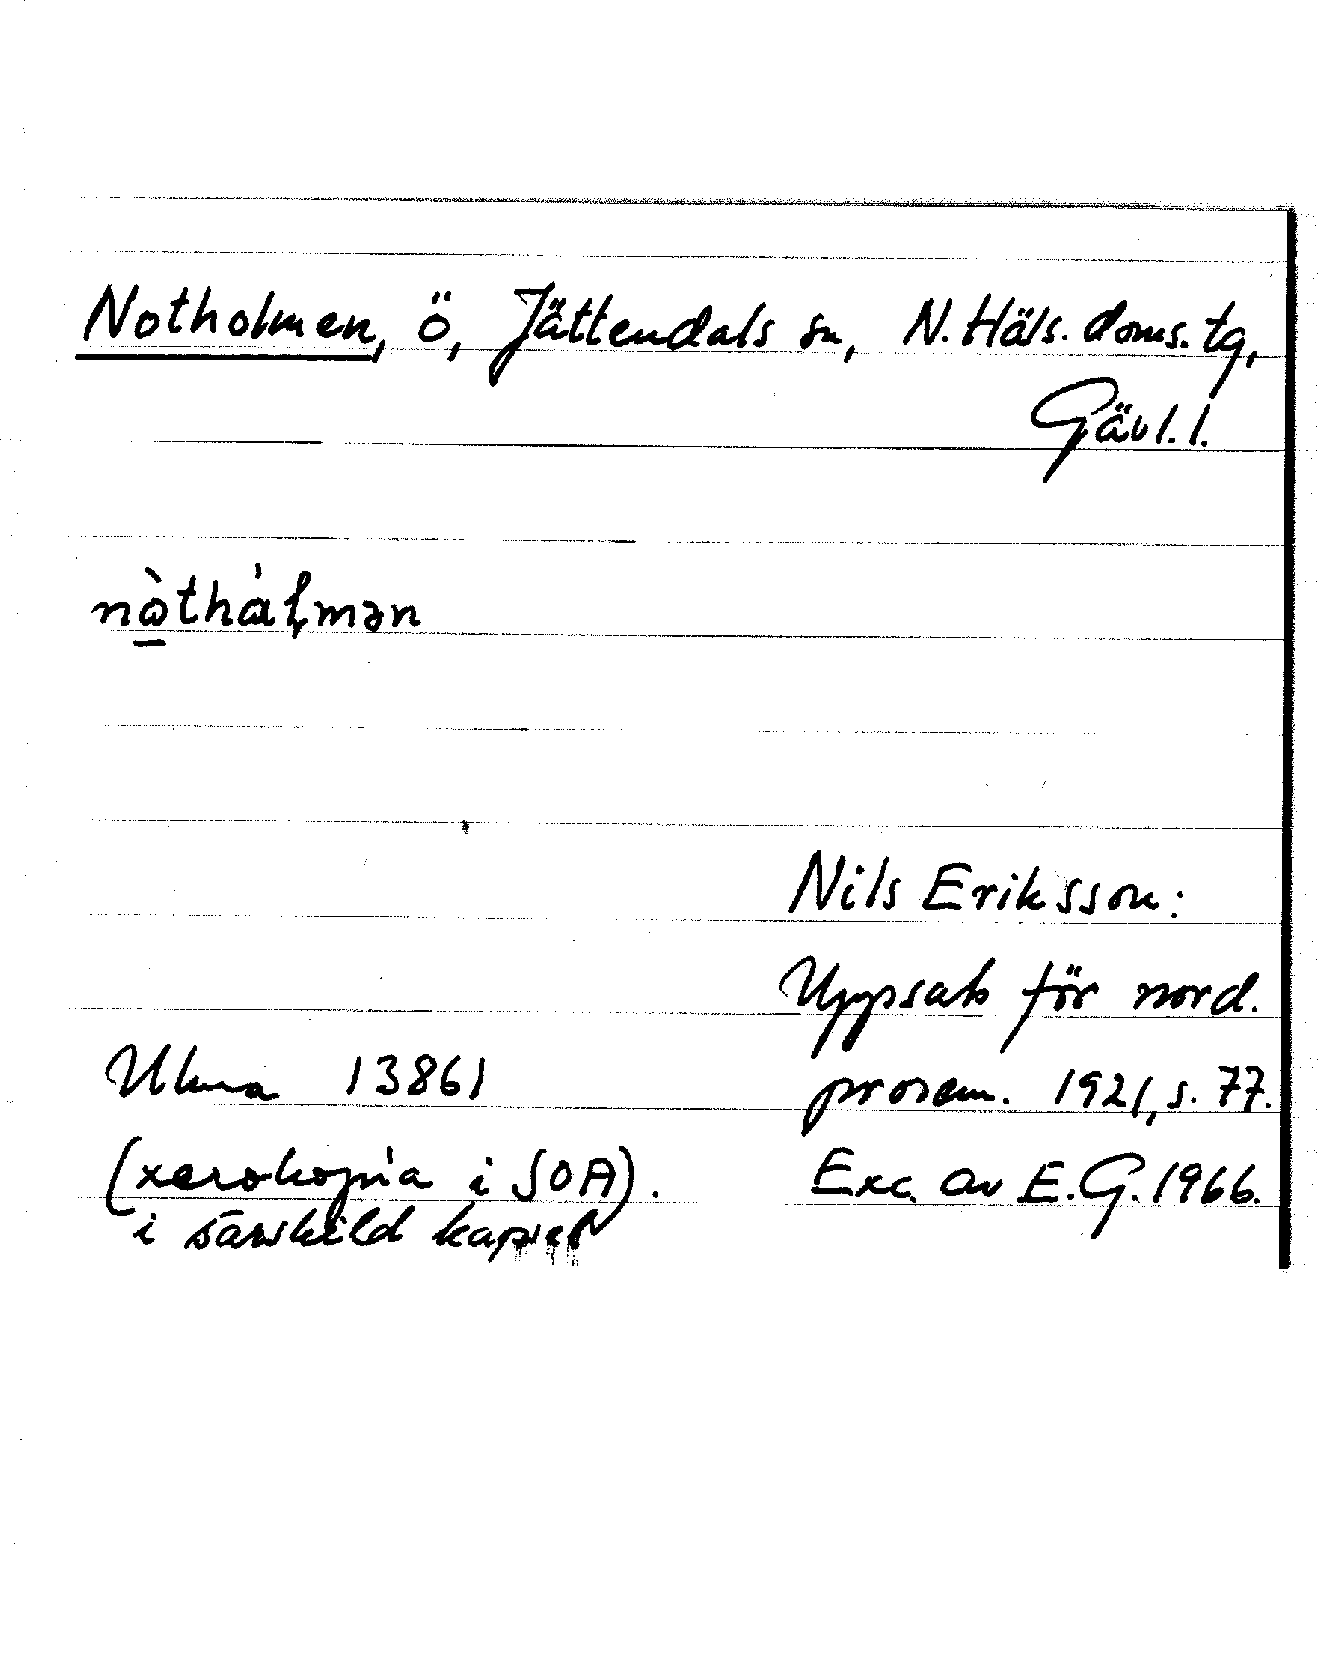 Notholmen, ö, Jättendals sn, N. Häls. doms. tg,
Gävl. l.
nòthàłmən
Nils Eriksson:
Uppsats för nord.
Ulma 13861
prosem. 1921, s. 77.
(xerokopia i SOA).
Exc. av E.G. 1966.
i särskild kapsel